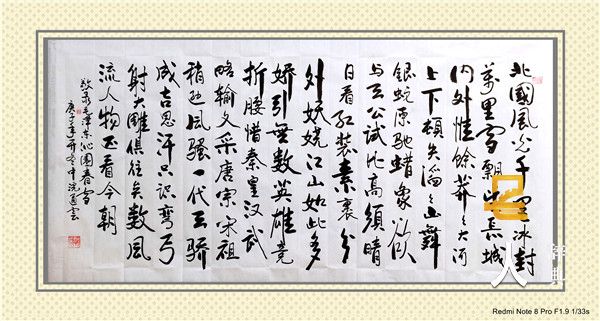 北國風光千里冰封
萬里雪飄望長城
内外惟餘莽々大河
上下頓失滔々山舞
銀蛇原馳蜡象欲
与天公試比高須晴
日看红装素裹分
外妖娆江山如此多
嬌引無數英雄竞
折腰惜秦皇汉武
略输文采唐宗宋祖
稍逊风骚一代天骄
成吉思汗只识彎弓
射大雕俱往矣数風
流人物还看今朝
敬录毛澤东沁園春雪
庚子年
Redmi Note 8 Pro F1.9 1/33s